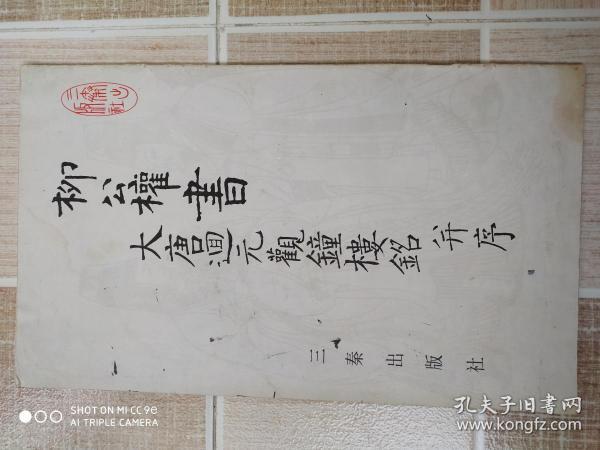 柳公權書
大唐迴元觀鐘樓銘并序
三秦出版社
SHOT ON MI CC 9e
AI TRIPLE CAMERA
孔夫子旧书网
www.kongfz.com